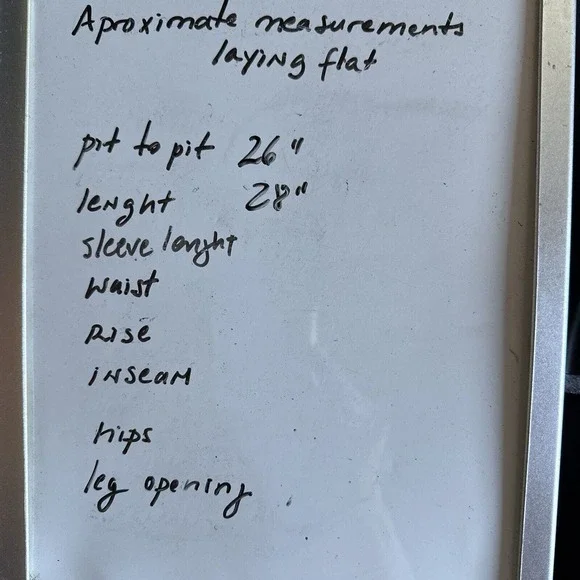 Aproximate measurements
laying flat
pit to pit 26"
lenght 28"
sleeve lenght
waist
Rise
inseam
hips
leg opening